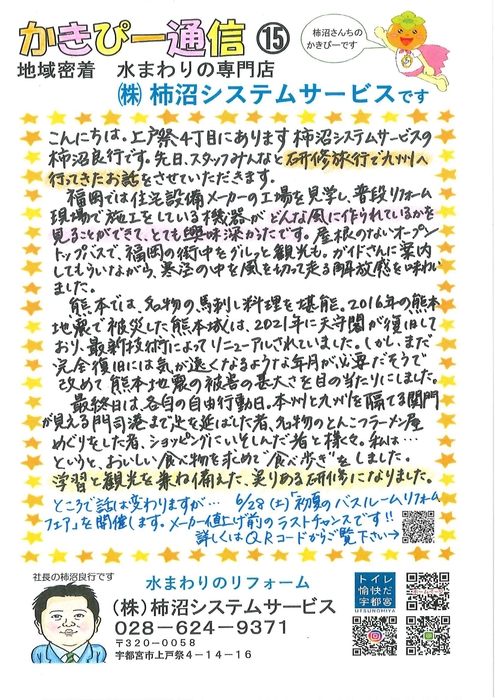 かきぴー通信 ⑮
柿沼さんちの
かきぴーです
地域密着 水まわりの専門店
㈱ 柿沼システムサービスです
こんにちは。上戸祭4丁目にあります柿沼システムサービスの
柿沼良行です。先日、スタッフみんなと研修旅行で九州へ
行ってきたお話をさせていただきます。
福岡では住宅設備メーカーの工場を見学し、普段リフォーム
現場で施工をしている機器がどんな風に作られているかを
見ることができて、とても興味深かったです。屋根のないオープン
トップバスで、福岡の街中をグルっと観光も。ガイドさんに案内
してもらいながら、寒空の中を風を切って走る解放感を味わい
ました。
熊本では、名物の馬刺し料理を堪能。2016年の熊本
地震で被災した熊本城は、2021年に天守閣が復旧して
おり、最新技術によってリニューアルされていました。しかし、まだ
完全復旧には気が遠くなるような年月が必要だそうで
改めて熊本地震の被害の甚大さを目の当たりにしました。
最終日は、各自の自由行動日。本州と九州を隔てる関門
が見える門司港まで足を延ばした者、名物のとんこつラーメン屋
めぐりをした者、ショッピングにいそしんだ者と様々。私は…
というと、おいしい食べ物を求めて“食べ歩き”をしました。
学習と観光を兼ね備えた、実りある研修になりました。
ところで話は変わりますが… 6/28(土)「初夏のバスルームリフォーム
フェア」を開催します。メーカー値上げ前のラストチャンスです!!
詳しくはQRコードからご覧下さい→
社長の柿沼良行です
水まわりのリフォーム
(株)柿沼システムサービス
028-624-9371
〒320-0058
宇都宮市上戸祭4-14-16
トイレ
愉快だ
宇都宮
UTSUNOMIYA